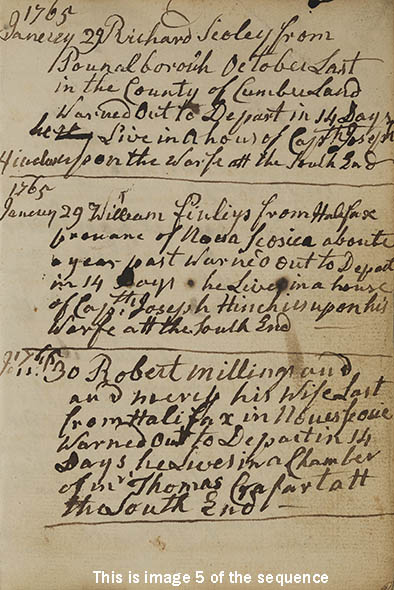 1765
Janerey 29 Richard Seoley from
Pounalborouh October Last
in the County of CumbreLand
Warned Out to Depart in 14 Days
he Live in a hous of Capth Joseph
upon the Warfe att the South End
1765
Janerey 29 William Finleys from Halifax
provanc of Nova Scosica aboute
a year past Warned out to Depart
in 14 Days he Lives in a house
of Capth Joseph Hinchis upon his
Warfe att the South End
1765
30 Robert millings and
and mercy his Wife Last
from Halifax in
Warned Out to Depart in 14
Days he Lives in a Chamber
of mr Thomas Crafart att
the South End
This is image 5 of the sequence